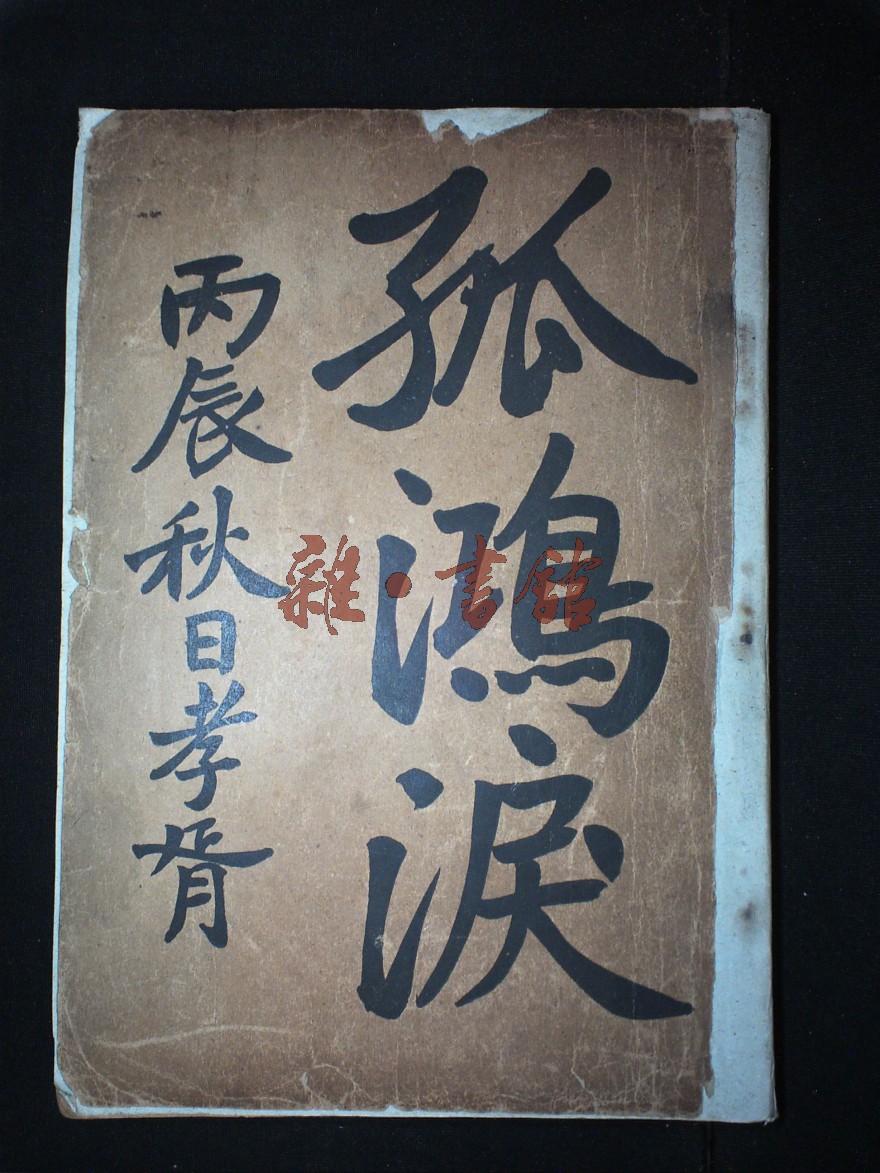 孤鴻淚
丙辰秋日孝胥
雜·書館